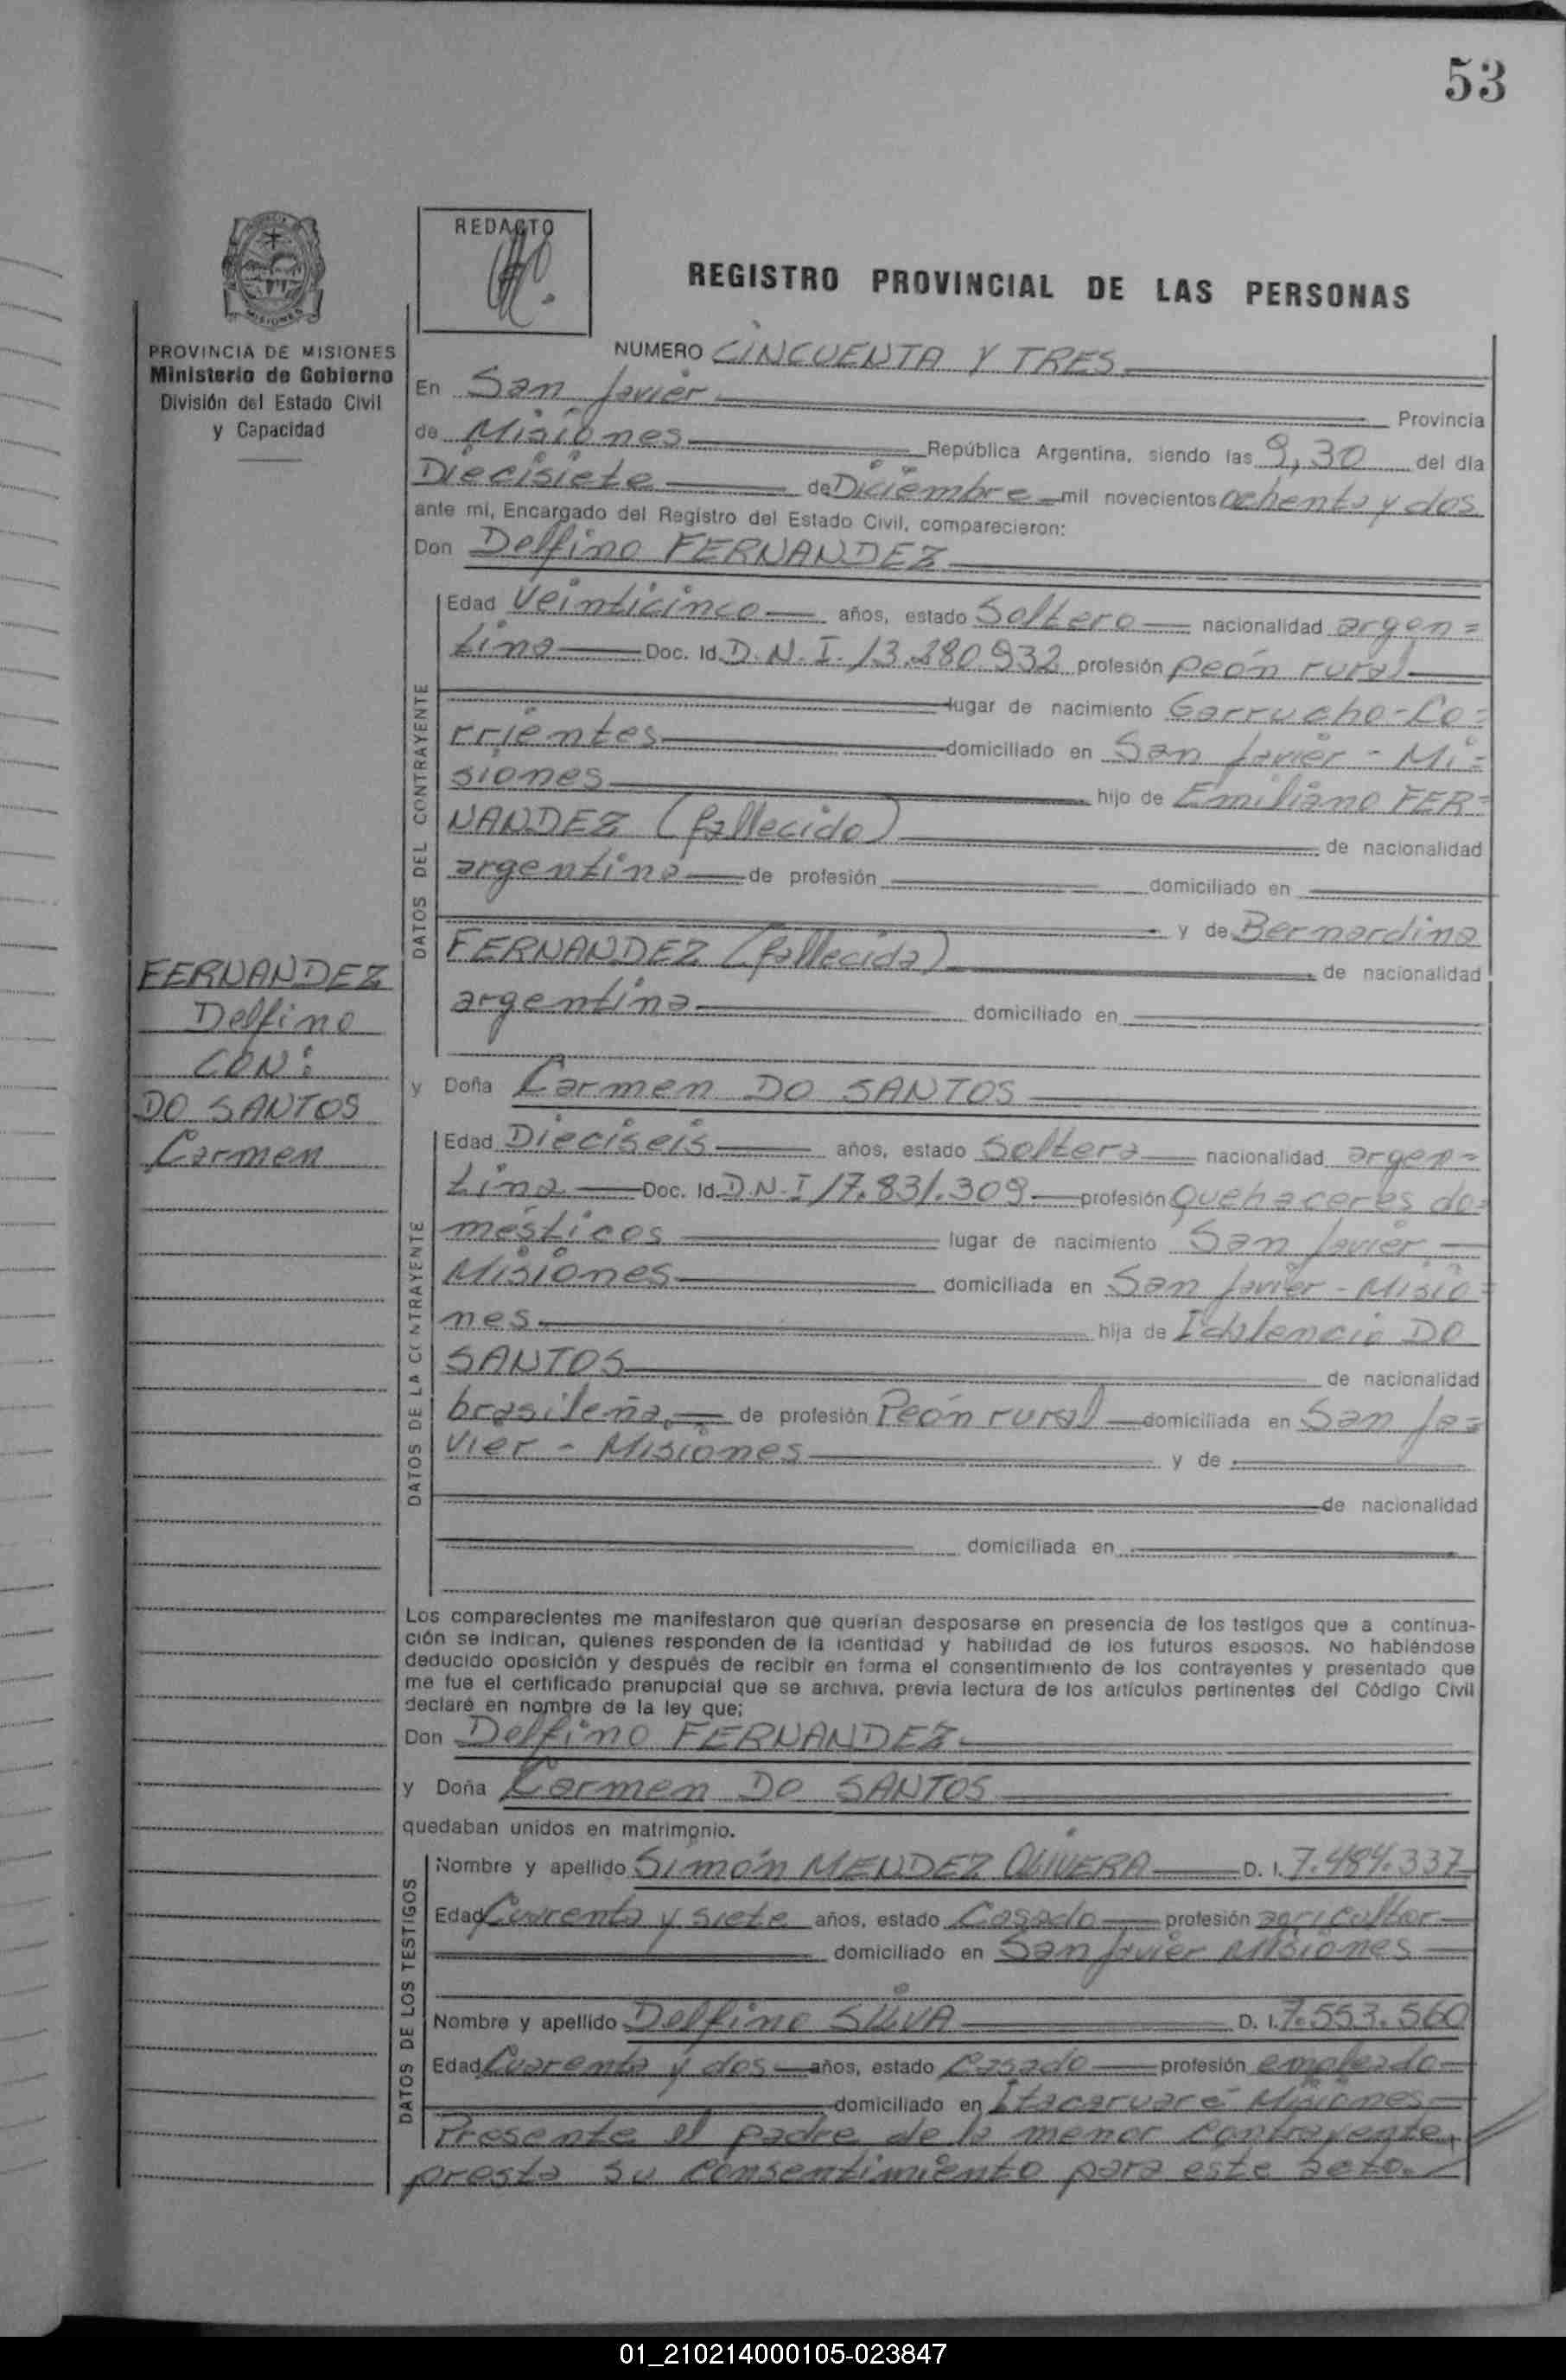 53
REDACTO
REGISTRO PROVINCIAL DE LAS PERSONAS
PROVINCIA DE MISIONES
Ministerio de Gobierno
División del Estado Civil
y Capacidad
MISIONES
NUMERO CINCUENTA Y TRES
En San Javier Provincia
de Misiones República Argentina, siendo las 9,30 del día
Diecisiete de Diciembre mil novecientos ochenta y dos
ante mi, Encargado del Registro del Estado Civil, comparecieron:
Don Delfino FERNANDEZ
DATOS DEL CONTRAYENTE
Edad Veinticinco años, estado Soltero nacionalidad argen=
tina Doc. Id. D.N.I. 13.280.932 profesión peón rural
lugar de nacimiento Garrucho-Co=
rrientes domiciliado en San Javier - Mi=
siones hijo de Emiliano FER=
NANDEZ (fallecido) de nacionalidad
argentina de profesión domiciliado en
y de Bernardina
FERNANDEZ (fallecida) de nacionalidad
argentina domiciliado en
FERNANDEZ
Delfino
CON:
DO SANTOS
Carmen
y Doña Carmen DO SANTOS
DATOS DE LA CONTRAYENTE
Edad Dieciseis años, estado Soltera nacionalidad argen=
tina Doc. Id. D.N.I 17.831.309 profesión Quehaceres do=
mésticos lugar de nacimiento San Javier
Misiones domiciliada en San Javier - Misio=
nes hija de DO
SANTOS de nacionalidad
brasileña de profesión Peón rural domiciliada en San Ja=
vier - Misiones y de
de nacionalidad
domiciliada en
Los comparecientes me manifestaron que querían desposarse en presencia de los testigos que a continua-
ción se indican, quienes responden de la identidad y habilidad de los futuros esposos. No habiéndose
deducido oposición y después de recibir en forma el consentimiento de los contrayentes y presentado que
me fue el certificado prenupcial que se archiva, previa lectura de los artículos pertinentes del Código Civil
declaré en nombre de la ley que;
Don Delfino FERNANDEZ
y Doña Carmen DO SANTOS
quedaban unidos en matrimonio.
DATOS DE LOS TESTIGOS
Nombre y apellido Simón MENDEZ OLIVERA D. I. 7.484.337
Edad Cuarenta y siete años, estado Casado profesión agricultor
domiciliado en San Javier Misiones
Nombre y apellido Delfino SILVA D. I. 7.553.560
Edad Cuarenta y dos años, estado Casado profesión empleado
domiciliado en Itacaruaré Misiones
Presente el padre de la menor contrayente,
presta su consentimiento para este acto.
01_210214000105-023847